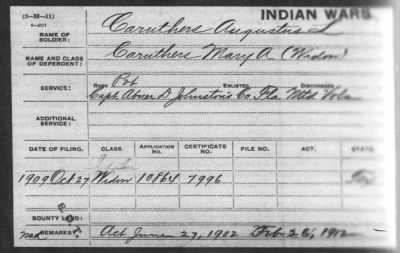 (3-H-11) INDIAN WARS
NAME OF SOLDIER: Caruthers Augustus L
NAME AND CLASS OF DEPENDENT: Caruthers Mary A (Widow)
SERVICE: RANK Pvt ENLISTED DISCHARGED
Capt. Abner D. Johnston's Co Fla Mtd Vols
ADDITIONAL SERVICE:
DATE OF FILING. CLASS. APPLICATION NO. CERTIFICATE NO. FILE NO. ACT. STATE.
1909 Oct 27 Widow 10864 7996
BOUNTY LAND:
REMARKS: Act June 27, 1902